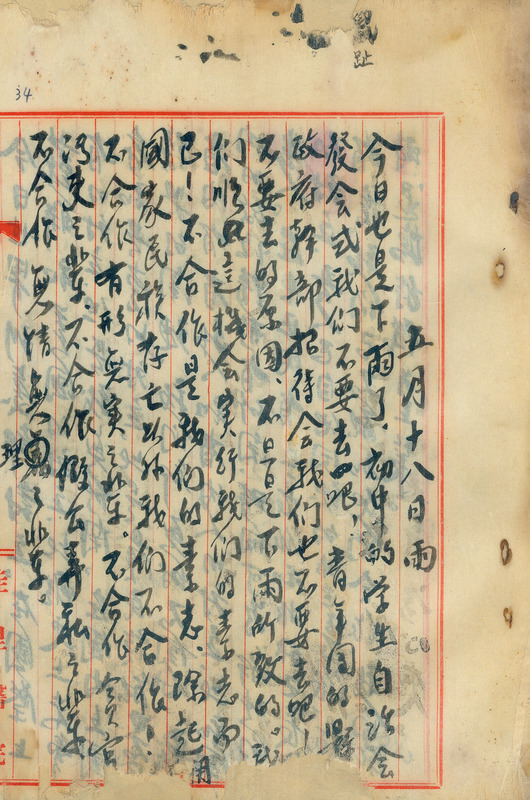 34
趾
五月十八日雨
今日也是下雨了、初中的学生自治会
發会式我们不要去四吧！青年团的縣
政府幹部招待会我们也不要去吧！
不要去的原因、不是下雨所致的。我
们順此這機会实行我们的素志而
已！不合作是我们的素志、除起
国家民族存亡以外我们不合作！
不合作有形無实之輩。不合作貪官
污吏之輩、不合作假公弄私之輩
不合作無情無理之輩。
用